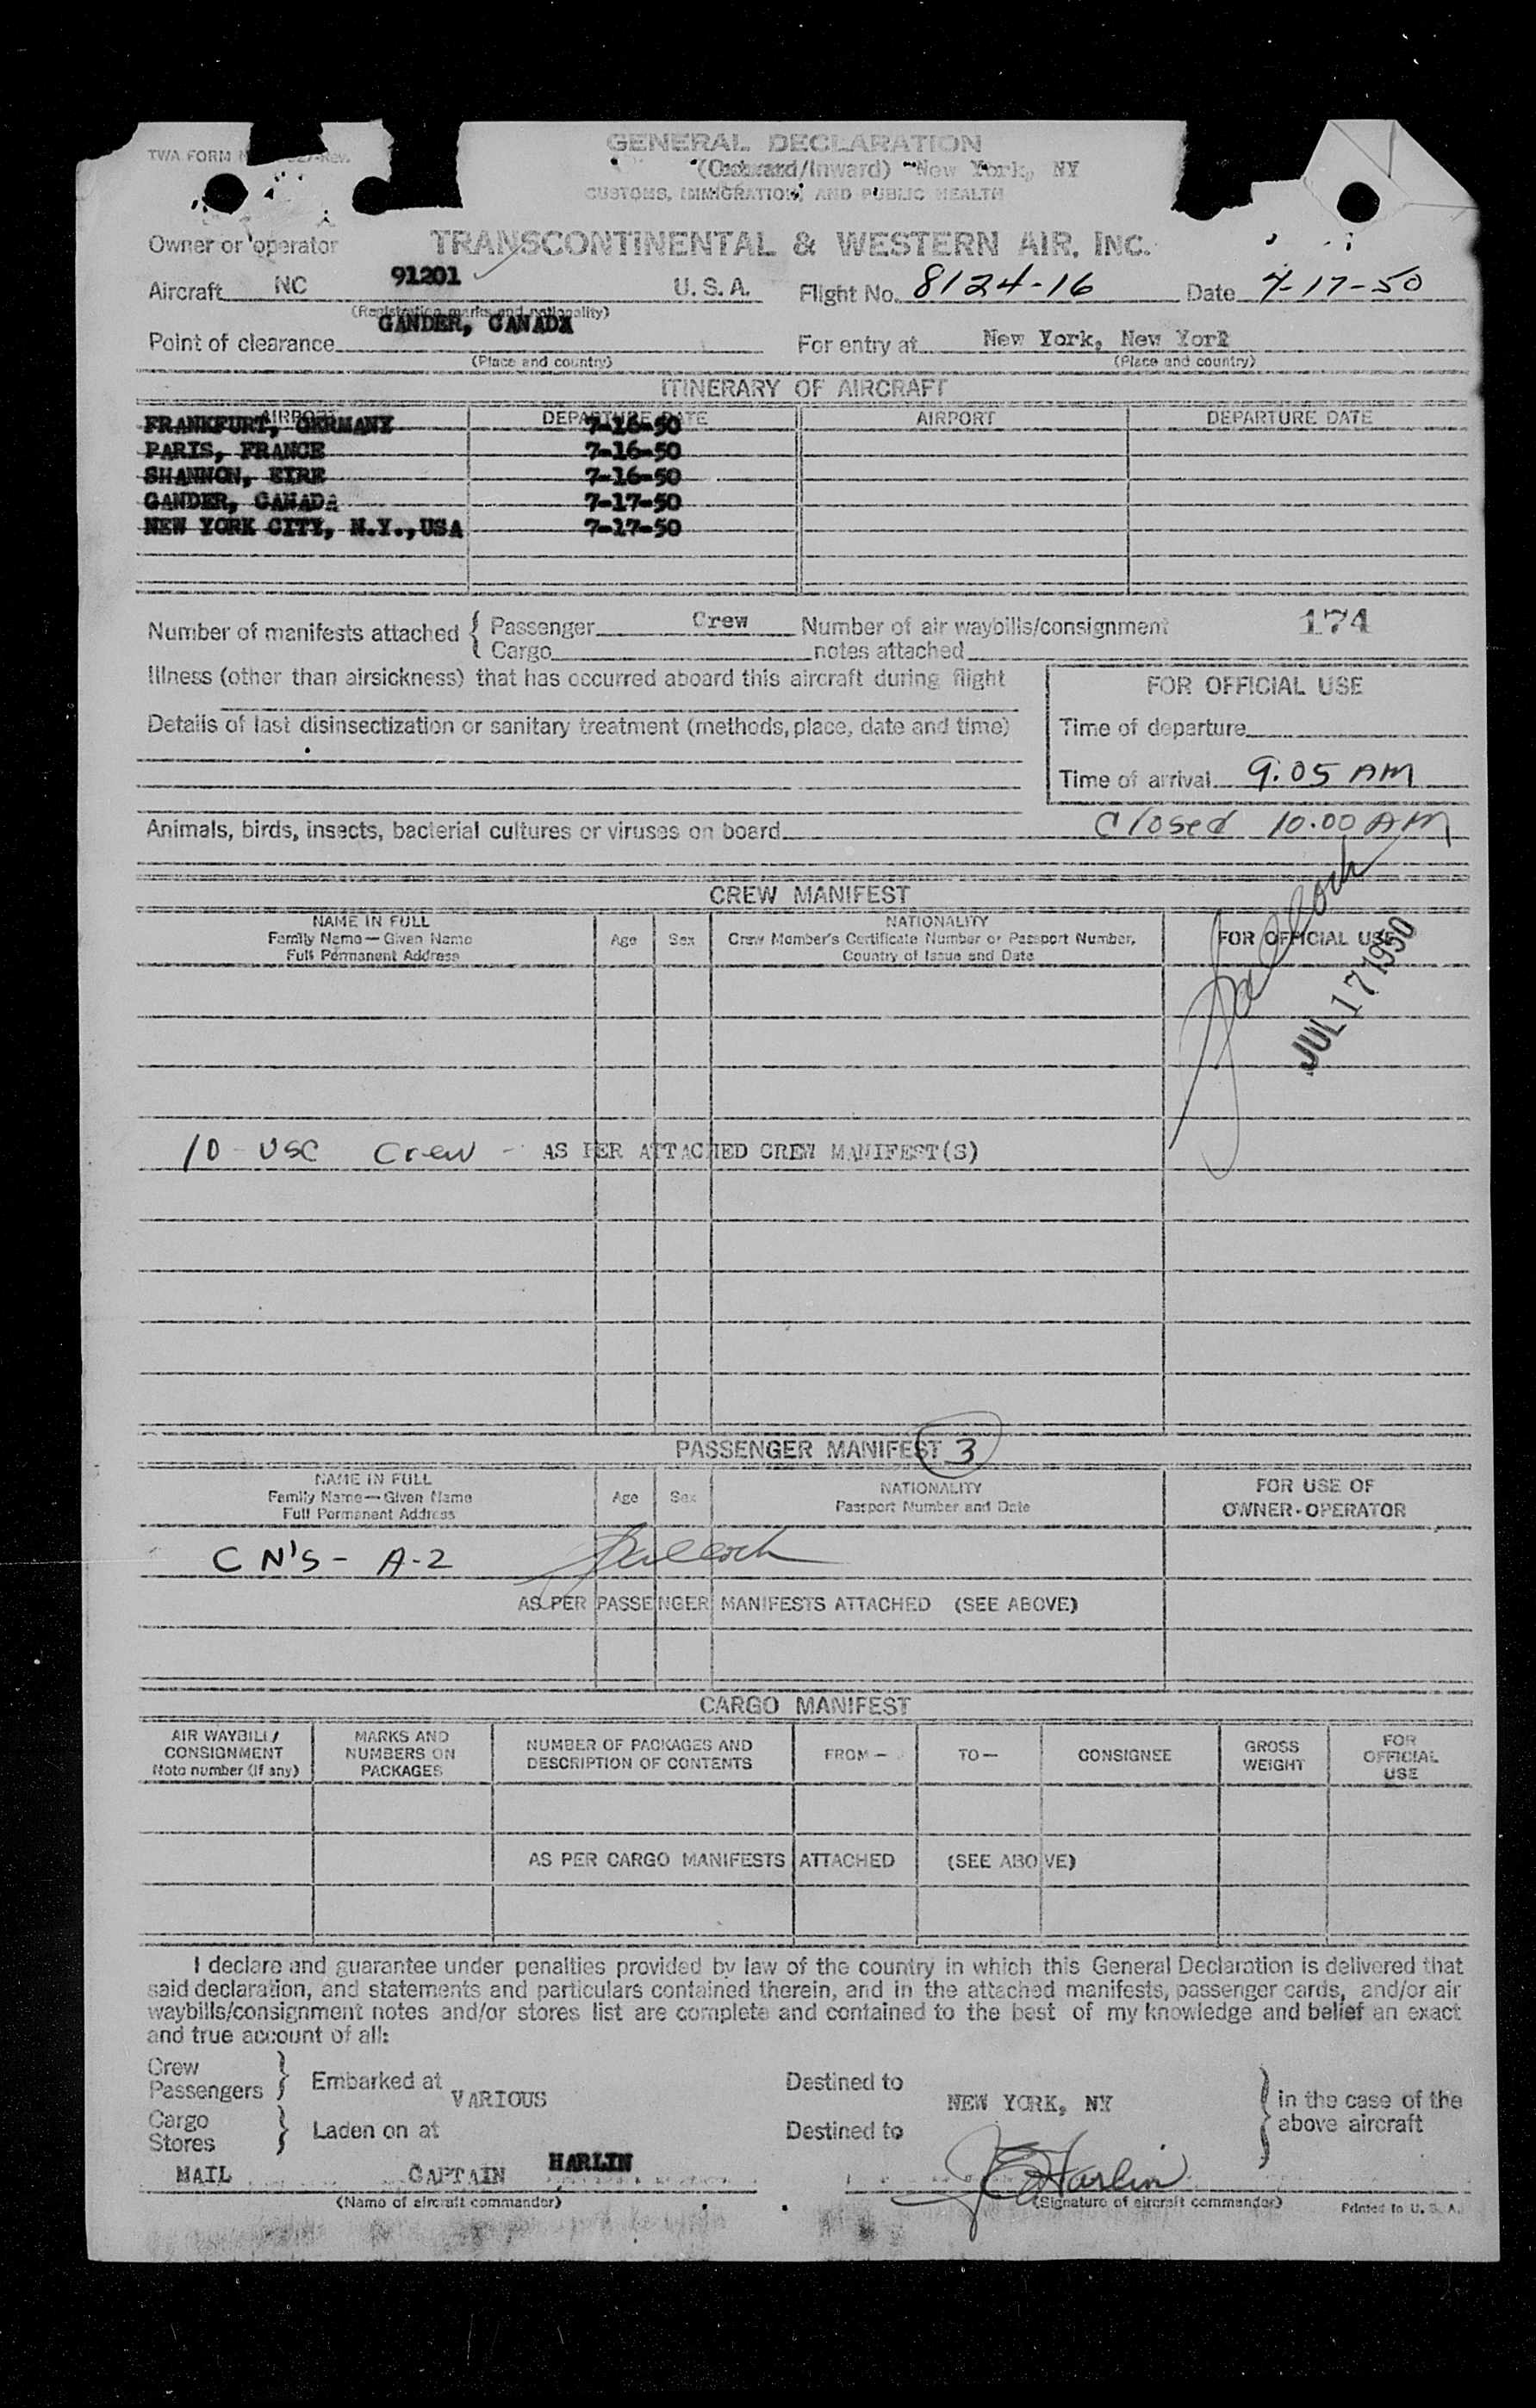 GENERAL DECLARATION
(Outward/Inward) New York, NY
CUSTOMS, IMMIGRATION, AND PUBLIC HEALTH
TWA FORM
Owner or operator TRANSCONTINENTAL & WESTERN AIR, INC.
Aircraft NC 91201 U. S. A. Flight No. 8124-16 Date 7-17-50
(Registration marks and nationality)
Point of clearance GANDER, CANADA For entry at New York, New York
(Place and country) (Place and country)
ITINERARY OF AIRCRAFT
AIRPORT DEPARTURE DATE AIRPORT DEPARTURE DATE
FRANKFURT, GERMANY 7-16-50
PARIS, FRANCE 7-16-50
SHANNON, EIRE 7-16-50
GANDER, CANADA 7-17-50
NEW YORK CITY, N.Y.,USA 7-17-50
Number of manifests attached { Passenger Crew Number of air waybills/consignment 174
Cargo notes attached
Illness (other than airsickness) that has occurred aboard this aircraft during flight
FOR OFFICIAL USE
Details of last disinsectization or sanitary treatment (methods, place, date and time)
Time of departure
Time of arrival 9.05 AM
Animals, birds, insects, bacterial cultures or viruses on board Closed 10.00 AM
CREW MANIFEST
NAME IN FULL
Family Name—Given Name
Full Permanent Address
Age Sex
NATIONALITY
Crew Member's Certificate Number or Passport Number,
Country of Issue and Date
FOR OFFICIAL USE
JUL 17 1950
10 - USC Crew - AS PER ATTACHED CREW MANIFEST(S)
PASSENGER MANIFEST 3
NAME IN FULL
Family Name—Given Name
Full Permanent Address
Age Sex
NATIONALITY
Passport Number and Date
FOR USE OF
OWNER-OPERATOR
CN'S - A-2
AS PER PASSENGER MANIFESTS ATTACHED (SEE ABOVE)
CARGO MANIFEST
AIR WAYBILL/
CONSIGNMENT
Note number (if any)
MARKS AND
NUMBERS ON
PACKAGES
NUMBER OF PACKAGES AND
DESCRIPTION OF CONTENTS
FROM—
TO—
CONSIGNEE
GROSS
WEIGHT
FOR
OFFICIAL
USE
AS PER CARGO MANIFESTS ATTACHED (SEE ABOVE)
I declare and guarantee under penalties provided by law of the country in which this General Declaration is delivered that
said declaration, and statements and particulars contained therein, and in the attached manifests, passenger cards, and/or air
waybills/consignment notes and/or stores list are complete and contained to the best of my knowledge and belief an exact
and true account of all:
Crew
Passengers } Embarked at VARIOUS Destined to NEW YORK, NY } in the case of the
above aircraft
Cargo
Stores } Laden on at Destined to
MAIL CAPTAIN HARLIN J E Harlin
(Name of aircraft commander) (Signature of aircraft commander) Printed in U. S. A.